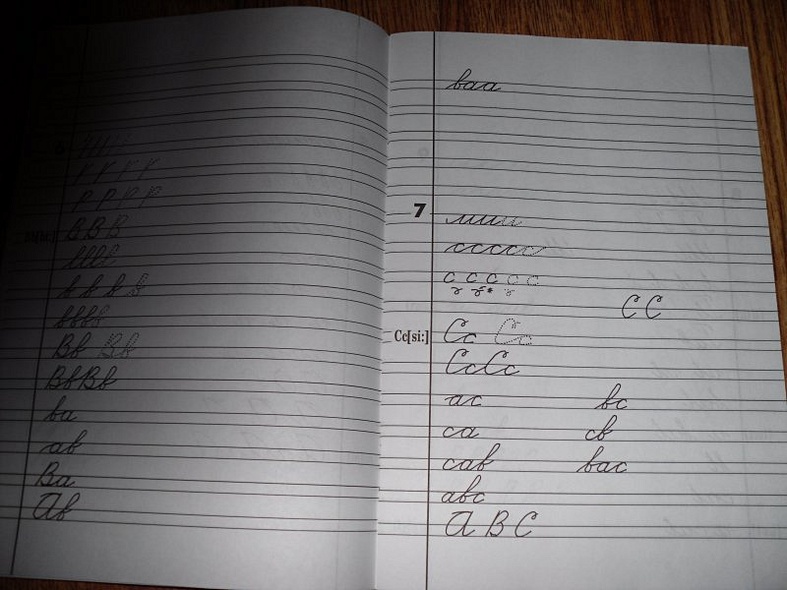 B B B
l l l l
b b b b
b b b b
Bb Bb
BbBb
ba
ab
Ba
Ab
baa
7
ccccc
c c c c c
C C
Cc[si:] Cc Cc
CcCc
ac bc
ca cb
cab bac
abc
A B C